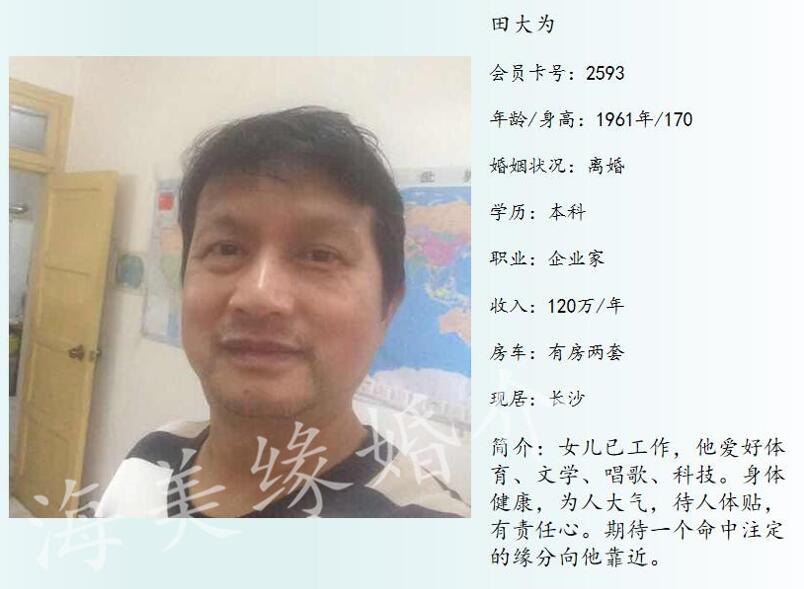 田大为
会员卡号：2593
年龄/身高：1961年/170
婚姻状况：离婚
学历：本科
职业：企业家
收入：120万/年
房车：有房两套
现居：长沙
简介：女儿已工作，他爱好体
育、文学、唱歌、科技。身体
健康，为人大气，待人体贴，
有责任心。期待一个命中注定
的缘分向他靠近。
世界
海美缘婚介